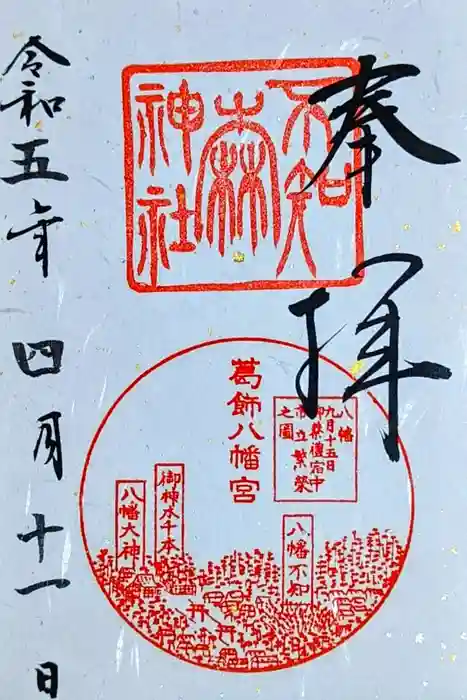 奉拝
不知
森
神社
葛飾八幡宮
八幡
九月十五日
御祭禮宿中
市立繁榮
之圖
御神木千本
八幡大神
八幡不知
令和五年四月十一日